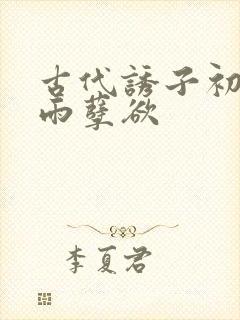 古代誘子初
雨孽欲
李夏君